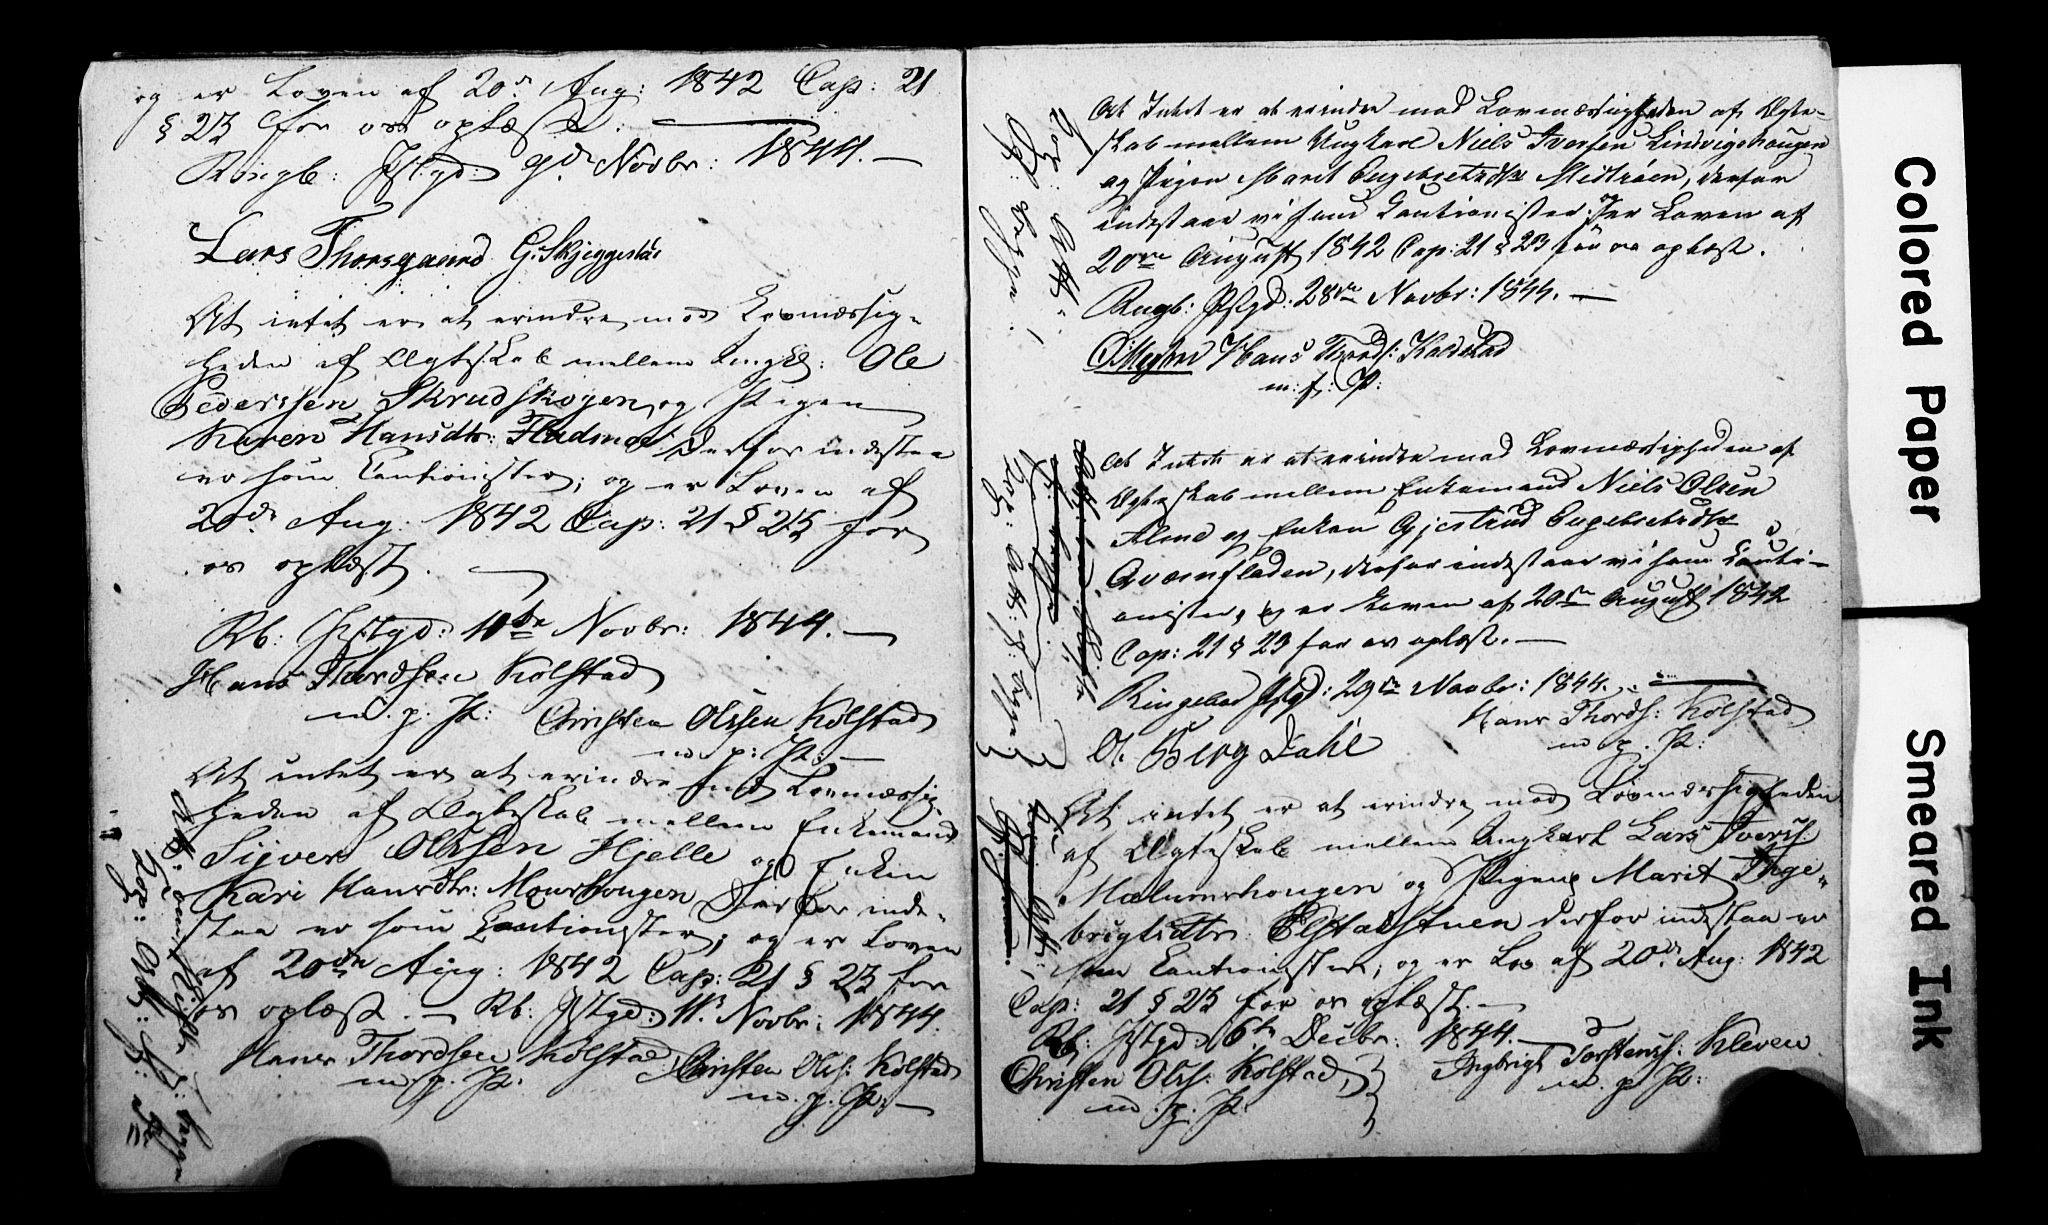 og er Loven af 20de Aug: 1842 Cap: 21
§ 23 for os oplæst.
Ringb: Pstgd: 9de Novbr: 1844. —
Lars Thorsgaard G. Skjeggestad
At intet er at erindre mod Lovmæssig-
heden af Ægteskab mellem Ungk: Ole
Pederssen Skrudskogen og Pigen
Karen Hansdtr: derfor indestaa
vi som Cautionister; og er Loven af
20de Aug. 1842 Cap: 21 § 23 for
os oplæst. —
Rb: Pstgd: 10de Novbr: 1844. —
Hans Thordsen Kolstad
m. p. P:
Christen Olssen Kolstad
m. p: P: —
At intet er at erindre mod Lovmæssig-
heden af Ægteskab mellem Enkemand
Syver Olssen Hjelle og Enken
Kari Hansdtr: Mourhougen derfor inde-
staa vi som Cautionister; og er Loven
af 20de Aug: 1842 Cap: 21 § 23 for
os oplæst. — Rb: Pstgd: 11te Novbr: 1844.
Hans Thordsen Kolstad
m. p. P:
Christen Ols: Kolstad
m. p. P: —
At Intet er at erindre mod Lovmæssigheden af Ægte-
skab mellem Ungkarl Niels Iversen Lindvigshougen
og Pigen Marit Engebretsdtr Mistroen, derfor
indestaar vi som Cautionister. og er Loven af
20de August 1842 Cap: 21 § 23 for os oplæst.
Ringb: Pstgd: 28de Novbr: 1844. —
Hans Thords: Kolstad
m: f: P:
At Intet er at erindre mod Lovmæssigheden af
Ægteskab mellem Enkemand Niels Olsen
Alme og Enken Gjertrud Engebretsdtr
Qværnfladen, derfor indestaar vi som Cauti-
onister, og er Loven af 20de August 1842
Cap: 21 § 23 for os oplæst. —
Ringeboe Pstgd: 29de Novbr: 1844.
Hans Thords: Kolstad
m. p. P:
O. Berg Dahl
At intet er at erindre mod Lovmæssigheden
af Ægteskab mellem Ungkarl Lars Ivers:
Malmershougen og Pigen Marit Inge-
brigtsdtr Elstadstuen derfor indestaa vi
som Cautionister; og er Lov af 20de Aug: 1842
Cap: 21 § 23 for os oplæst. —
Rb: Pstgd: 6te Decbr: 1844. —
Christen Ols: Kolstad
m. p. P:
Ingbrigt Torstens: Kleven
m. p. P:
Colored Paper
Smeared Ink